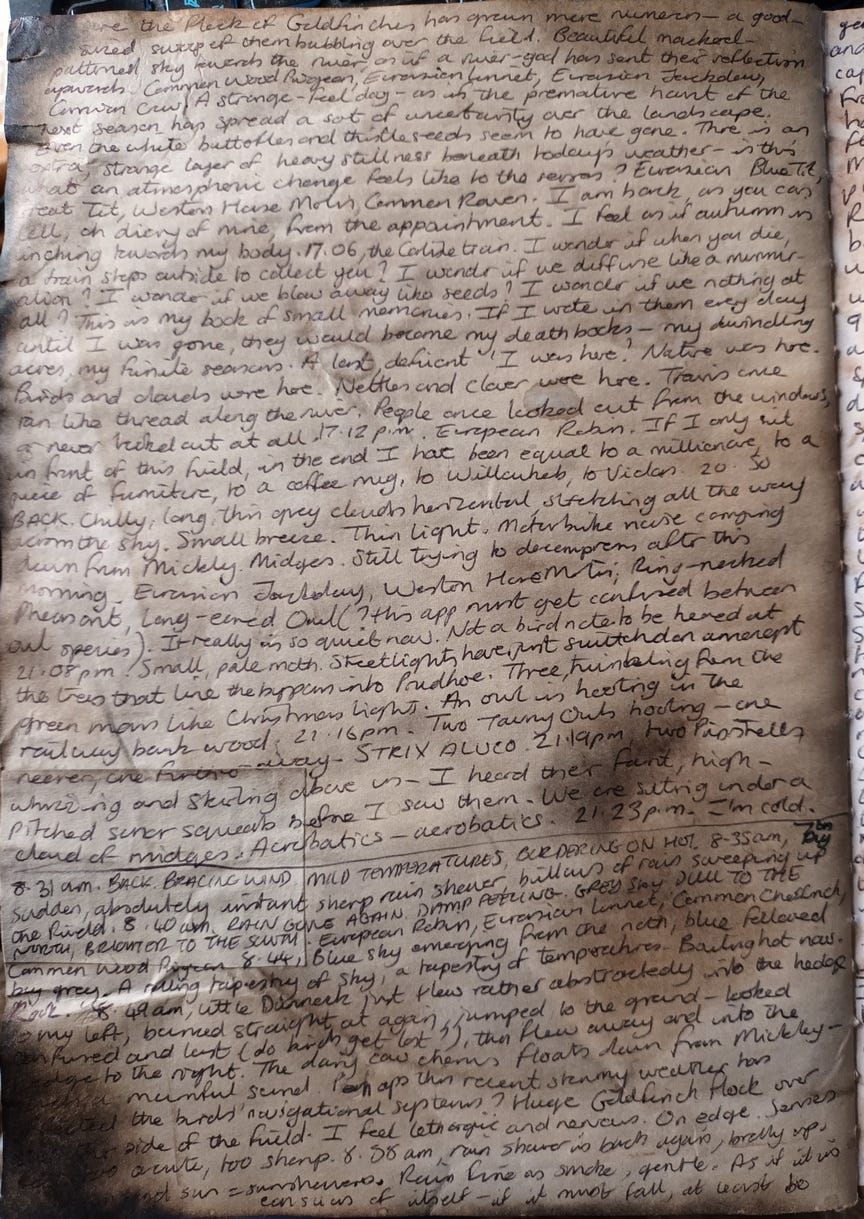 the flock of Goldfinches has grown more numerous – a good-
sized swoop of them bubbling over the field. Beautiful mackerel-
patterned sky towards the river, as if a river-god has sent their reflection
upwards. Common Wood Pigeon, Eurasian Linnet, Eurasian Jackdaw,
Common Crow. A strange-feel day – as if the premature haunt of the
next season has spread a sort of uncertainty over the landscape.
Even the white butterflies and thistleseeds seem to have gone. There is an
extra, strange layer of heavy stillness beneath today's weather – is this
what an atmospheric change feels like to the senses? Eurasian Blue Tit,
Great Tit, Western House Martin, Common Raven. I am back, as you can
tell, oh diary of mine, from the appointment. I feel as if autumn is
inching towards my body. 17.06, the Carlisle train. I wonder if when you die,
a train stops outside to collect you? I wonder if we diffuse like a murmur-
ation? I wonder if we blow away like seeds? I wonder if we nothing at
all? This is my book of small memories. If I wrote in them every day
until I was gone, they would become my death books – my dwindling
acres, my finite seasons. A last, defiant 'I was here'. Nature was here.
Birds and clouds were here. Nettles and clover were here. Trains once
ran like thread along the river. People once looked out from the windows,
or never looked out at all. 17.12 p.m. European Robin. If I only sit
in front of this field, in the end I have been equal to a millionaire, to a
piece of furniture, to a coffee mug, to Willowherb, to Viclas. 20.50
BACK. Chilly, long, thin grey clouds horizontal, stretching all the way
across the sky. Small breeze. Thin light. Motorbike noise coming
down from Mickley. Midges. Still trying to decompress after this
morning. Eurasian Jackdaw, Western House Martin, Ring-necked
Pheasant, Long-eared Owl (? this app must get confused between
owl species). It really is so quiet now. Not a bird note to be heard at
21.08pm. Small, pale moth. Streetlights have just switched on amongst
the trees that line the bypass into Prudhoe. Three, tumbling from the
green mass like Christmas lights. An owl is hooting in the
railway bank wood. 21.16pm. Two Tawny Owls hooting – one
nearer, one further away – STRIX ALUCO. 21.19pm, two Pipistrelles
whizzing and skirling above us – I heard their faint, high-
pitched sonar squeaks before I saw them. We are sitting under a
cloud of midges. Acrobatics – aerobatics. 21.23p.m. I'm cold.
8.31am. BACK. BRACING WIND, MILD TEMPERATURES, BORDERING ON HOT. 8.35am,
sudden, absolutely instant sharp rain shower, billows of rain sweeping up
the field. 8.40am, RAIN GONE AGAIN. DAMP FEELING. GREY SKY, DULL TO THE
NORTH, BRIGHTER TO THE SOUTH. European Robin, Eurasian Linnet, Common Chaffinch,
Common Wood Pigeon. 8.44, Blue sky emerging from the north, blue followed
by grey. A rolling tapestry of sky, a tapestry of temperatures. Boiling hot now.
Rook. 8.49am, little Dunnock just flew rather abstractedly into the hedge
to my left, burned straight out again, jumped to the ground – looked
confused and lost (do birds get lost?), then flew away and into the
hedge to the right. The dairy cow chorus floats down from Mickley –
such a mournful sound. Perhaps this recent stormy weather has
the birds' navigational systems? Huge Goldfinch flock over
side of the field. I feel lethargic and nervous. On edge. Senses
acute, too sharp. 8.58am, rain shower is back again, brolly up.
and sun = sunshowers. Rain fine as smoke, gentle. As if it is
conscious of itself – if it must fall, at least be